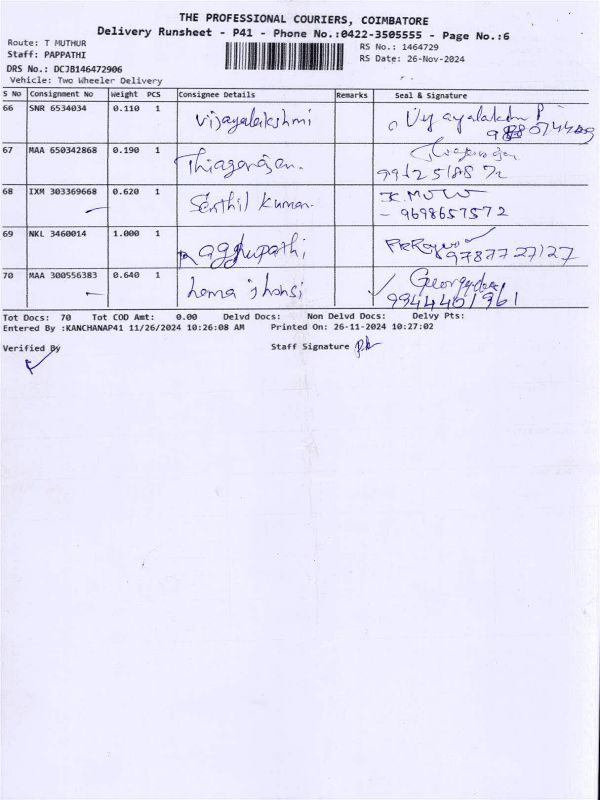 THE PROFESSIONAL COURIERS, COIMBATORE
Delivery Runsheet - P41 - Phone No.:0422-3505555 - Page No.:6
Route: T MUTHUR
RS No.: 1464729
Staff: PAPPATHI
RS Date: 26-Nov-2024
DRS No.: DCJB146472906
Vehicle: Two Wheeler Delivery
S No Consignment No Weight PCS Consignee Details Remarks Seal & Signature
66 SNR 6534034 0.110 1 Vijayalakshmi
67 MAA 650342868 0.190 1 Thiagarajan.
68 IXM 303369668 0.620 1 Senthil Kumar.
- 9698657572
69 NKL 3460014 1.000 1 Ragghupathi
9787727127
70 MAA 300556383 0.640 1
9944401961
Tot Docs: 70 Tot COD Amt: 0.00 Delvd Docs: Non Delvd Docs: Delvy Pts:
Entered By :KANCHANAP41 11/26/2024 10:26:08 AM Printed On: 26-11-2024 10:27:02
Verified By Staff Signature